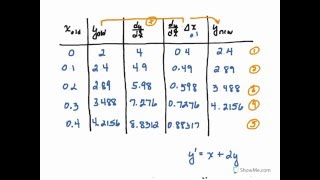 ②
x old y old dy/dx dy/dx Δx 0.1 y new
0 2 4 0.4 2.4 ①
0.1 2.4 4.9 0.49 2.89 ②
0.2 2.89 5.98 0.598 3.488 ③
0.3 3.488 7.276 0.7276 4.2156 ④
0.4 4.2156 8.8312 0.88317 ⑤
y' = x + 2y
ShowMe.com